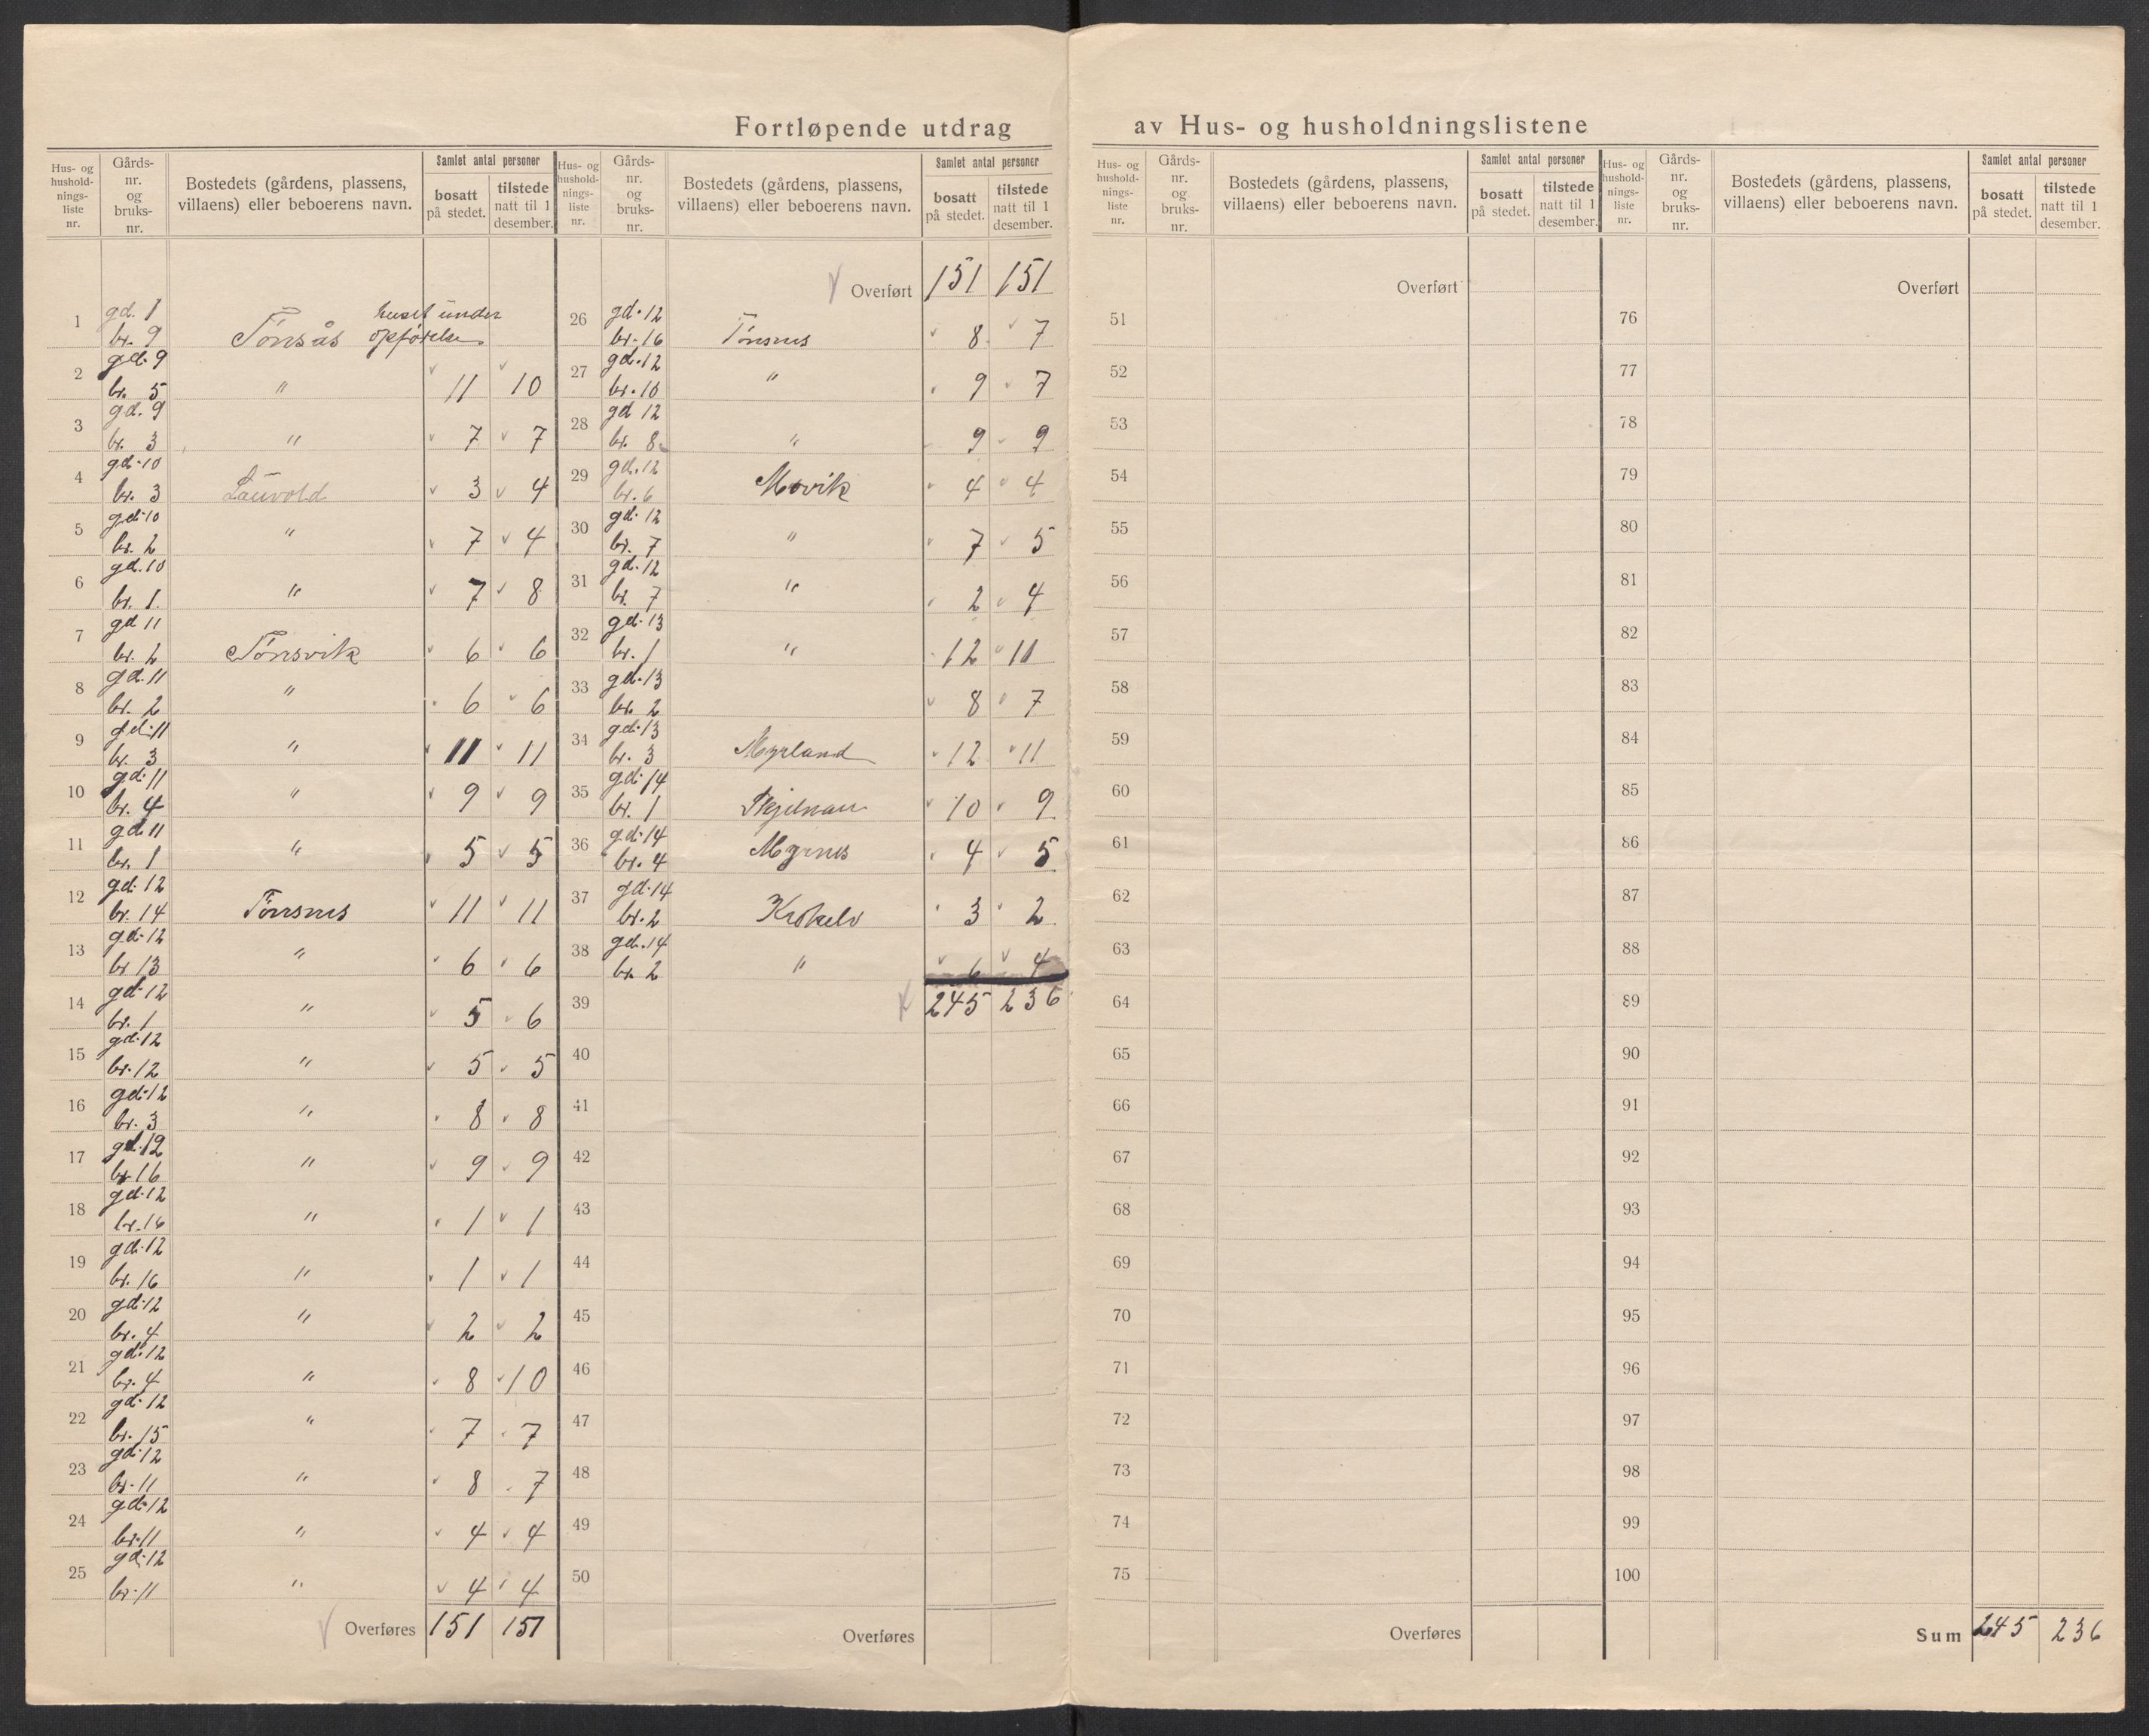 Fortløpende utdrag av Hus- og husholdningslistene
Hus- og hushold-nings-liste nr. | Gårds-nr. og bruks-nr. | Bostedets (gårdens, plassens, villaens) eller beboerens navn. | Samlet antal personer | bosatt på stedet. | tilstede natt til 1 desember.
1 | gd. 1 br. 9 | Tönsås huset under opförelse
2 | gd. 9 br. 5 | " | 11 | 10
3 | gd. 9 br. 3 | " | 7 | 7
4 | gd. 10 br. 3 | Lauvold | 3 | 4
5 | gd. 10 br. 2 | " | 7 | 4
6 | gd. 10 br. 1. | " | 7 | 8
7 | gd 11 br. 2 | Tönsvik | 6 | 6
8 | gd. 11 br. 2 | " | 6 | 6
9 | gd. 11 br. 3 | " | 11 | 11
10 | gd. 11 br. 4 | " | 9 | 9
11 | gd 11 br. 1 | " | 5 | 5
12 | gd. 12 br. 14 | Tönsnes | 11 | 11
13 | gd. 12 br 13 | " | 6 | 6
14 | gd. 12 br. 1 | " | 5 | 6
15 | gd. 12 br. 12 | " | 5 | 5
16 | gd. 12 br. 3 | " | 8 | 8
17 | gd. 12 br 16 | " | 9 | 9
18 | gd. 12 br. 16 | " | 1 | 1
19 | gd. 12 br. 16 | " | 1 | 1
20 | gd. 12 br. 4 | " | 2 | 2
21 | gd. 12 br. 4 | " | 8 | 10
22 | gd. 12 br. 15 | " | 7 | 7
23 | gd. 12 br. 11 | " | 8 | 7
24 | gd. 12 br. 11 | " | 4 | 4
25 | gd. 12 br. 11 | " | 4 | 4
Overføres | 151 | 151
Hus- og hushold-nings-liste nr. | Gårds-nr. og bruks-nr. | Bostedets (gårdens, plassens, villaens) eller beboerens navn. | Samlet antal personer | bosatt på stedet. | tilstede natt til 1 desember.
Overført | 151 | 151
26 | gd. 12 br. 16 | Tönsnes | 8 | 7
27 | gd. 12 br. 10 | " | 9 | 7
28 | gd 12 br. 8 | " | 9 | 9
29 | gd. 12 br. 6 | Movik | 4 | 4
30 | gd. 12 br. 7 | " | 7 | 5
31 | gd. 12 br. 7 | " | 2 | 4
32 | gd. 13 br. 1 | " | 12 | 11
33 | gd. 13 br. 2 | 8 | 7
34 | gd. 13 br. 3 | Myrland | 12 | 11
35 | gd. 14 br. 1 | 10 | 9
36 | gd. 14 br. 4 | Myrnes | 4 | 5
37 | gd. 14 br. 2 | Krokelv | 3 | 2
38 | gd. 14 br. 2 | " | 6 | 4
39 | 245 | 236
40
41
42
43
44
45
46
47
48
49
50
Overføres
Hus- og hushold-nings-liste nr. | Gårds-nr. og bruks-nr. | Bostedets (gårdens, plassens, villaens) eller beboerens navn. | Samlet antal personer | bosatt på stedet. | tilstede natt til 1 desember.
Overført
51
52
53
54
55
56
57
58
59
60
61
62
63
64
65
66
67
68
69
70
71
72
73
74
75
Overføres
Hus- og hushold-nings-liste nr. | Gårds-nr. og bruks-nr. | Bostedets (gårdens, plassens, villaens) eller beboerens navn. | Samlet antal personer | bosatt på stedet. | tilstede natt til 1 desember.
Overført
76
77
78
79
80
81
82
83
84
85
86
87
88
89
90
91
92
93
94
95
96
97
98
99
100
Sum | 245 | 236